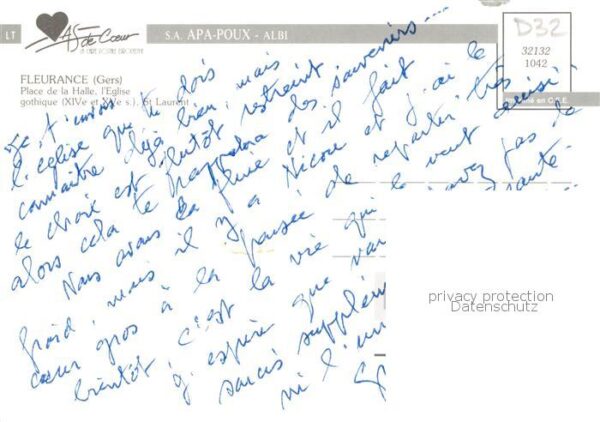 LT
AS de Cœur
S.A. APA-POUX - ALBI
D32
32132
1042
FLEURANCE (Gers)
Place de la Halle, l'Eglise
gothique (XIVe et XVe s.), St Laurent
Je t'envoie
l'église que tu dois
connaître déjà bien, mais
le choix est plutôt restreint
alors cela te rappelera des souvenirs...
Nous avons la pluie et il fait
froid, mais il y a Nicou et j'ai le
cœur gros à la pensée de repartir très
bientôt, c'est la vie qui le veut ainsi
j'espère que vous avez pas de
ni l'un
privacy protection
Datenschutz